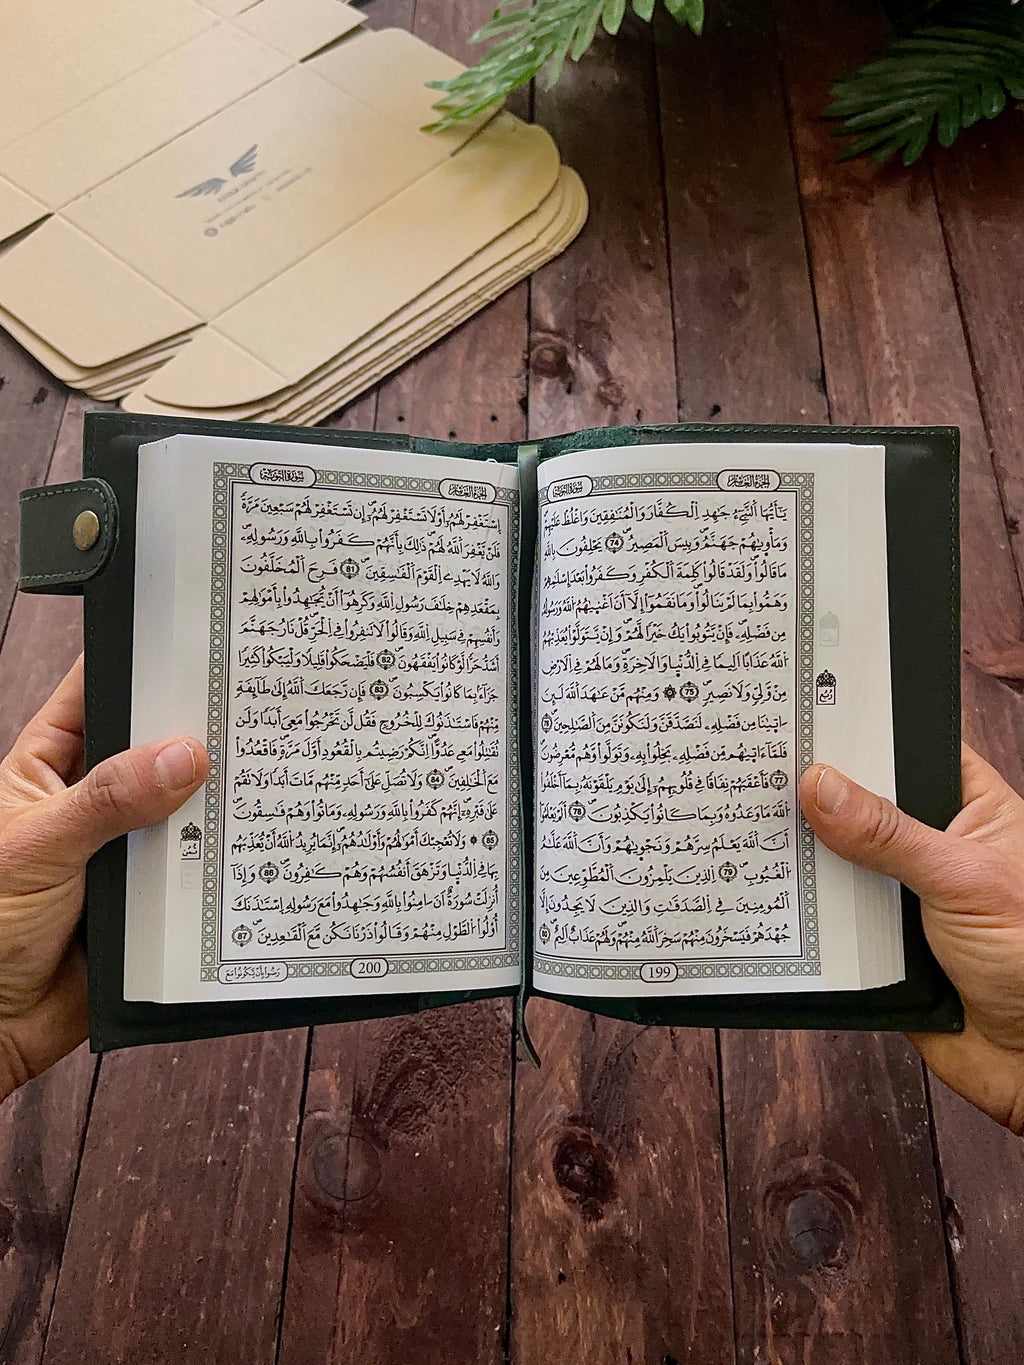 الجزء العاشر
سورة التوبة
يَٰٓأَيُّهَا اَلنَّبِےٓءُ جَٰهِدِ اِلْكُفَّارَ وَالْمُنَٰفِقِينَ وَاغْلُظْ عَلَيْهِمْ
وَمَأْوٜيٰهُمْ جَهَنَّمُ وَبِيسَ اَلْمَصِيرُ 74 يَحْلِفُونَ بِاللَّهِ
مَا قَالُواْ وَلَقَدْ قَالُواْ كَلِمَةَ اَلْكُفْرِ وَكَفَرُواْ بَعْدَ إِسْلَٰمِهِمْ
وَهَمُّواْ بِمَا لَمْ يَنَالُواْ وَمَا نَقَمُوٓاْ إِلَّآ أَنَ اَغْنٜيٰهُمُ اُللَّهُ وَرَسُولُهُۥ
مِن فَضْلِهِۦ فَإِنْ يَّتُوبُواْ يَكُ خَيْراً لَّهُمْ وَإِنْ يَّتَوَلَّوْاْ يُعَذِّبْهُمُ
اُللَّهُ عَذَاباً اَلِيماً فِے اِلدُّنْيٜا وَالَاخِرَةِ وَمَا لَهُمْ فِے اِلَارْضِ
مِنْ وَّلِيّٖ وَلَا نَصِيرٖ 75 ۞ وَمِنْهُم مَّنْ عَٰهَدَ اَللَّهَ لَئِنَ
اٰتٜيٰنَا مِن فَضْلِهِۦ لَنَصَّدَّقَنَّ وَلَنَكُونَنَّ مِنَ اَلصَّٰلِحِينَ 76
فَلَمَّآ ءَاتٜيٰهُم مِّن فَضْلِهِۦ بَخِلُواْ بِهِۦ وَتَوَلَّواْ وَّهُم مُّعْرِضُونَ
77 فَأَعْقَبَهُمْ نِفَاقاً فِے قُلُوبِهِمُۥٓ إِلَىٰ يَوْمِ يَلْقَوْنَهُۥ بِمَآ أَخْلَفُواْ
اُللَّهَ مَا وَعَدُوهُ وَبِمَا كَانُواْ يَكْذِبُونَ 78 أَلَمْ يَعْلَمُوٓاْ
أَنَّ اَللَّهَ يَعْلَمُ سِرَّهُمْ وَنَجْوٜيٰهُمْ وَأَنَّ اَللَّهَ عَلَّٰمُ
اُلْغُيُوبِ 79 اِلذِينَ يَلْمِزُونَ اَلْمُطَّوِّعِينَ مِنَ
اَلْمُومِنِينَ فِے اِلصَّدَقَٰتِ وَالذِينَ لَا يَجِدُونَ إِلَّا
جُهْدَهُمْ فَيَسْخَرُونَ مِنْهُمْ سَخِرَ اَللَّهُ مِنْهُمْ وَلَهُمْ عَذَابٌ اَلِيمٌ 80
رُبُع
199
سورة التوبة
الجزء العاشر
اِسْتَغْفِرْ لَهُمُۥٓ أَوْ لَا تَسْتَغْفِرْ لَهُمُۥٓ إِن تَسْتَغْفِرْ لَهُمْ سَبْعِينَ مَرَّةٗ
فَلَنْ يَّغْفِرَ اَللَّهُ لَهُمْ ذَٰلِكَ بِأَنَّهُمْ كَفَرُواْ بِاللَّهِ وَرَسُولِهِۦ
وَاللَّهُ لَا يَهْدِے اِلْقَوْمَ اَلْفَٰسِقِينَ 81 فَرِحَ اَلْمُخَلَّفُونَ
بِمَقْعَدِهِمْ خِلَٰفَ رَسُولِ اِللَّهِ وَكَرِهُوٓاْ أَنْ يُّجَٰهِدُواْ بِأَمْوَٰلِهِمْ
وَأَنفُسِهِمْ فِے سَبِيلِ اِللَّهِ وَقَالُواْ لَا تَنفِرُواْ فِے اِلْحَرِّ قُلْ نَارُ جَهَنَّمَ
أَشَدُّ حَرّاً لَّوْ كَانُواْ يَفْقَهُونَ 82 فَلْيَضْحَكُواْ قَلِيلاً وَلْيَبْكُواْ كَثِيراً
جَزَآءَۢ بِمَا كَانُواْ يَكْسِبُونَ 83 فَإِن رَّجَعَكَ اَللَّهُ إِلَىٰ طَآئِفَةٖ
مِّنْهُمْ فَاسْتَٰذَنُوكَ لِلْخُرُوجِ فَقُل لَّن تَخْرُجُواْ مَعِيَ أَبَداً وَلَن
تُقَٰتِلُواْ مَعِے عَدُوّاً اِنَّكُمْ رَضِيتُم بِالْقُعُودِ أَوَّلَ مَرَّةٖ فَاقْعُدُواْ
مَعَ اَلْخَٰلِفِينَ 84 وَلَا تُصَلِّ عَلَىٰٓ أَحَدٖ مِّنْهُم مَّاتَ أَبَداً وَلَا تَقُمْ
عَلَىٰ قَبْرِهِۦٓ إِنَّهُمْ كَفَرُواْ بِاللَّهِ وَرَسُولِهِۦ وَمَاتُواْ وَهُمْ فَٰسِقُونَ
85 ۞ وَلَا تُعْجِبْكَ أَمْوَٰلُهُمْ وَأَوْلَٰدُهُمُۥٓ إِنَّمَا يُرِيدُ اُللَّهُ أَنْ يُّعَذِّبَهُم
بِهَا فِے اِلدُّنْيٜا وَتَزْهَقَ أَنفُسُهُمْ وَهُمْ كَٰفِرُونَ 86 وَإِذَآ
أُنزِلَتْ سُورَةٌ أَنَ اٰمِنُواْ بِاللَّهِ وَجَٰهِدُواْ مَعَ رَسُولِهِ اِسْتَٰذَنَكَ
أُوْلُواْ اُلطَّوْلِ مِنْهُمْ وَقَالُواْ ذَرْنَا نَكُن مَّعَ اَلْقَٰعِدِينَ 87
ثُمُن
رَضُواْ بِأَنْ يَّكُونُواْ مَعَ
200